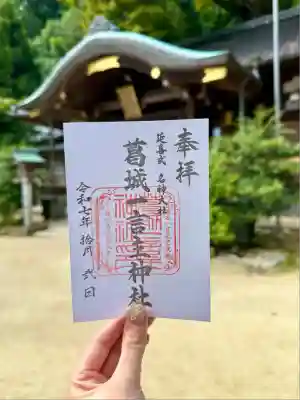 奉拝
延喜式 名神大社
葛城一言主神社
令和七年 拾月 弐日